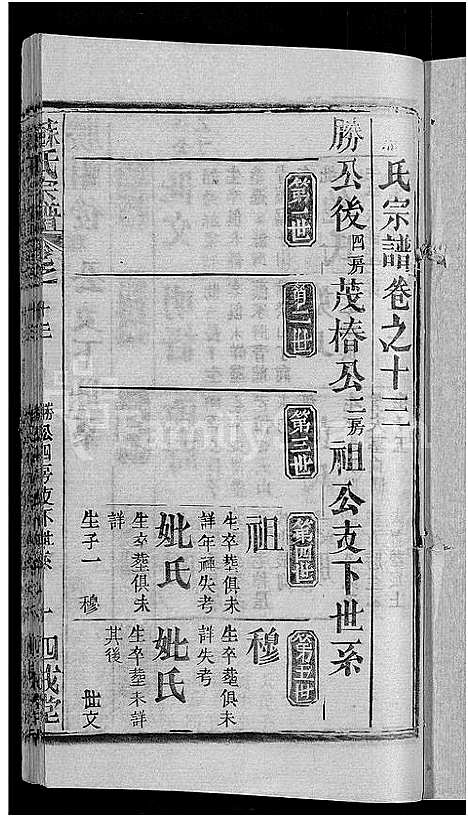 氏宗譜卷之十三
勝公後四房茂椿公二房祖公支下世系
第一世
第二世
第三世
第四世
第五世
祖
生卒塟俱未
詳年禋失考
妣氏
生卒塟俱未
詳
生子一 穆
穆
生卒塟俱未
詳失考
妣氏
生卒塟未詳
其後
世文
蘇氏宗譜
卷之
十三
勝公四房支下世系
一